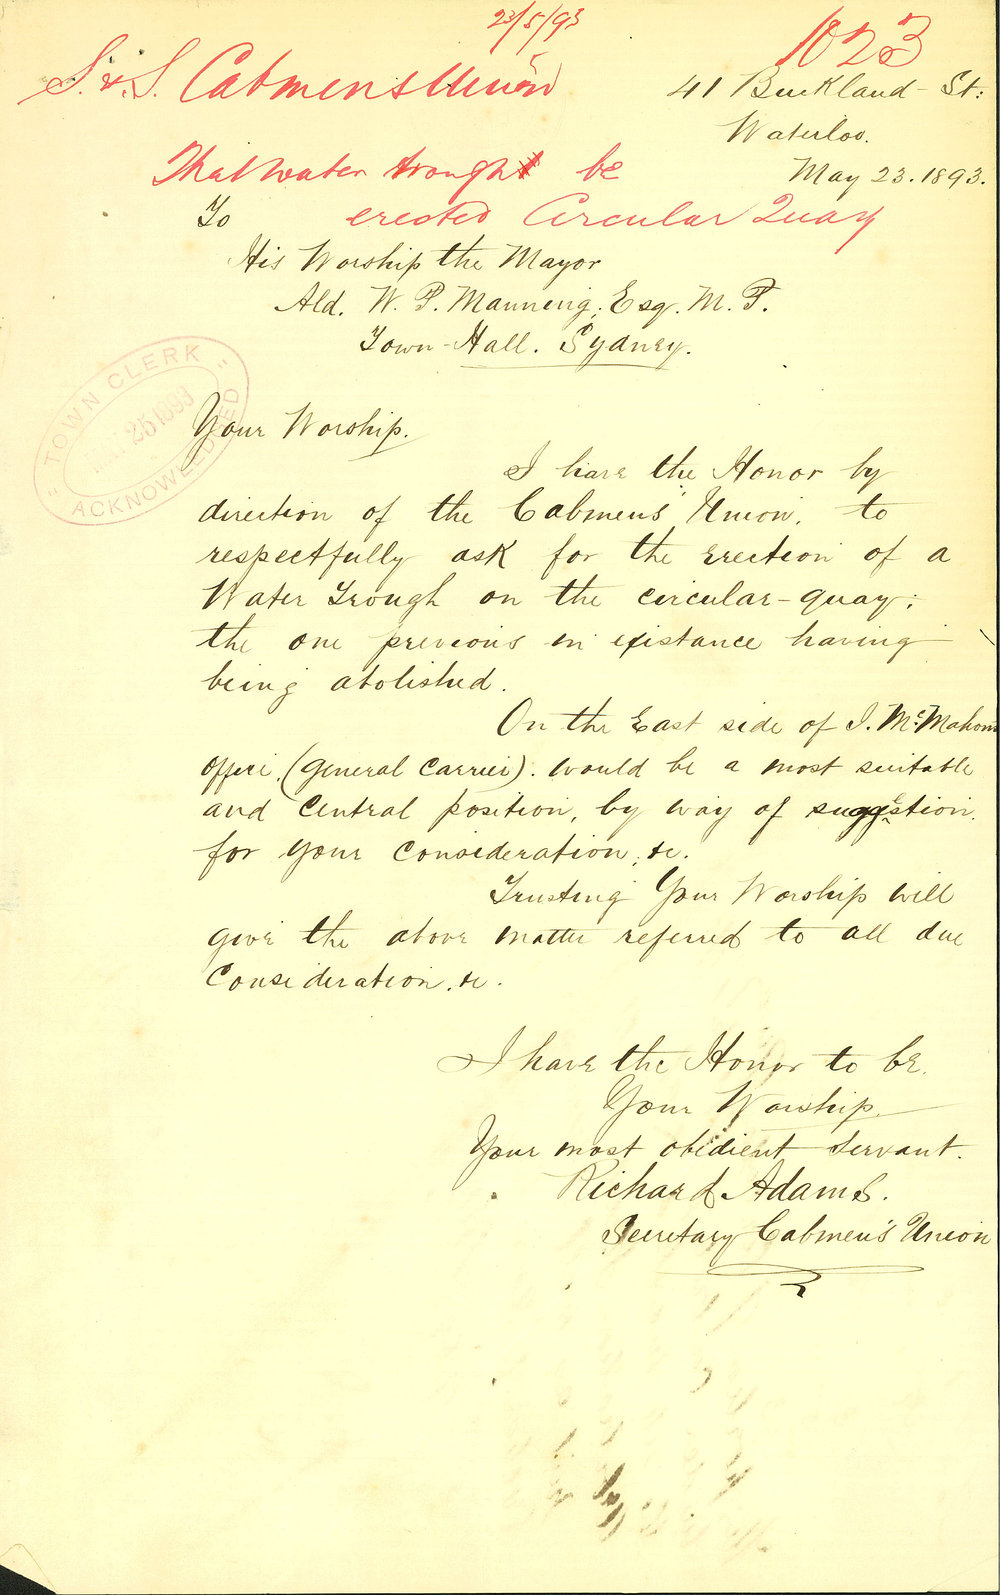 23/5/93
1823
S. & S. Cabmens Union
41 Buckland St:
Waterloo.
That water trough be
May 23. 1893.
To
erected Circular Quay
His Worship the Mayor
Ald. W. P. Manning, Esq. M. P.
Town-Hall. Sydney.
TOWN CLERK
25 1893
ACKNOWLEDGED
Your Worship.
I have the Honor by
direction of the Cabmens' Union, to
respectfully ask for the Erection of a
Water Trough on the circular-quay;
the one previous in existance having
being abolished.
On the East side of J. McMahons
Office, (General Carrier). would be a most suitable
and Central position, by way of suggestion
for your consideration, &c.
Trusting Your Worship will
give the above matter referred to all due
Consideration. &c.
I have the Honor to be.
Your Worship
Your most obidient servant.
Richard Adams.
Secretary Cabmen's Union